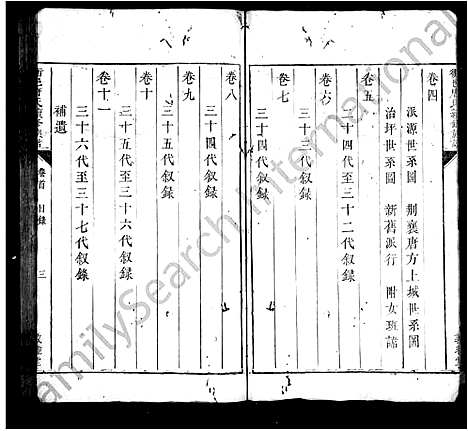 卷四
派源世系圖　荆襄唐方上城世系圖
治坪世系圖　新舊派行　附女班諱
卷五
二十四代至三十二代叙録
卷六
卷七
三十三代叙録
卷八
三十四代叙録
卷九
三十五代叙録
卷十
三十五代至三十六代叙録
卷十一
三十六代至三十七代叙錄
補遺
卷首　目錄　三
FamilySearch International